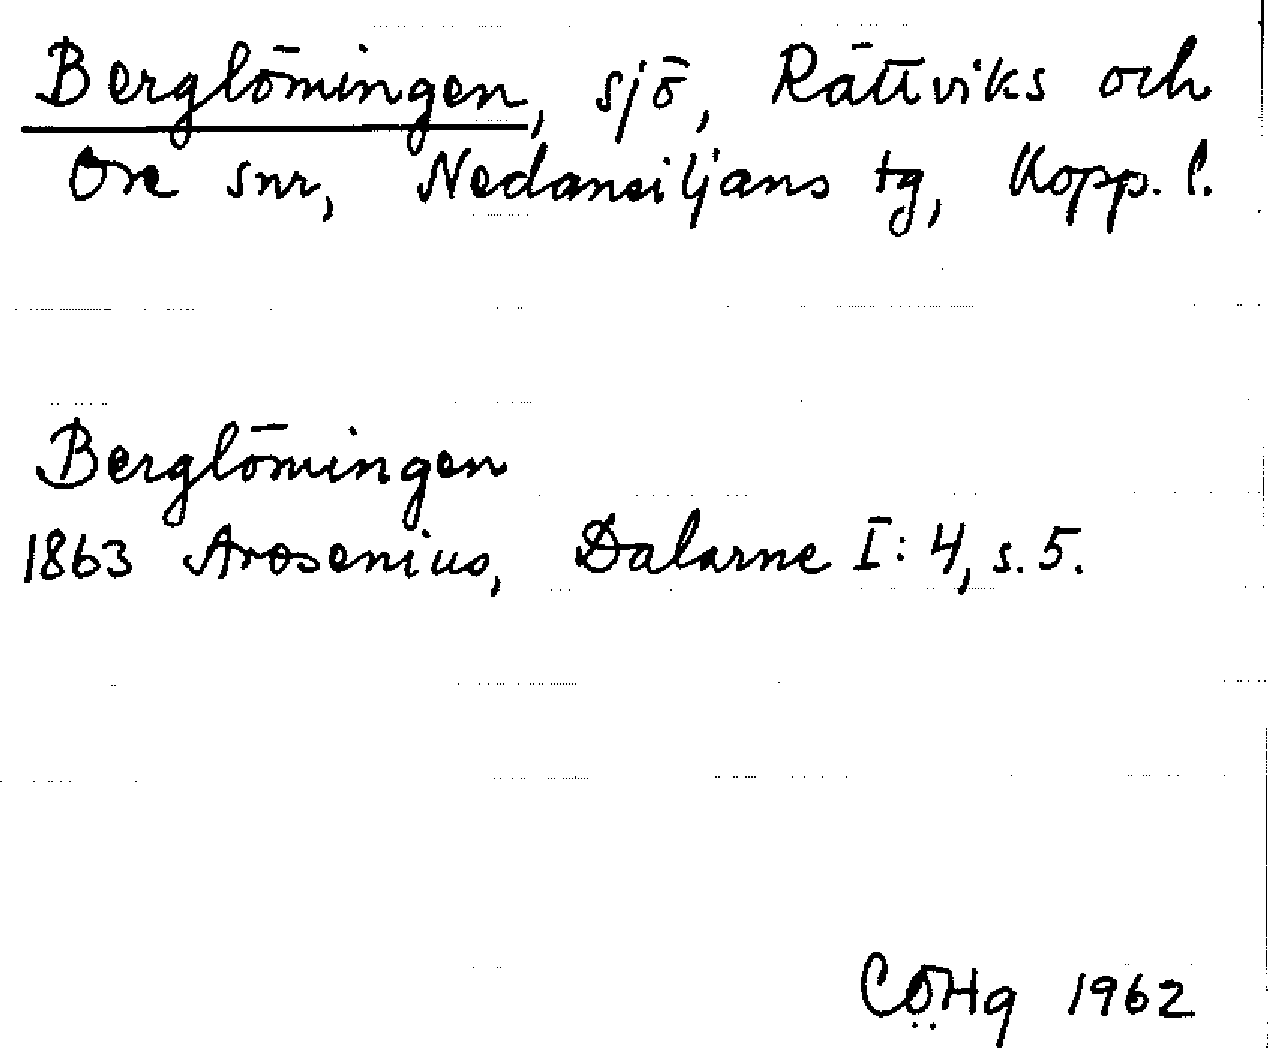 Berglömingen, sjö, Rättviks och
Ore snr, Nedansiljans tg, Kopp. l.
Berglömingen
1863 Arosenius, Dalarne I: 4, s. 5.
CÖHg 1962